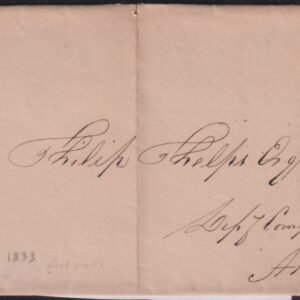 Philip Phelps Esq
Depy Comp
A
1833